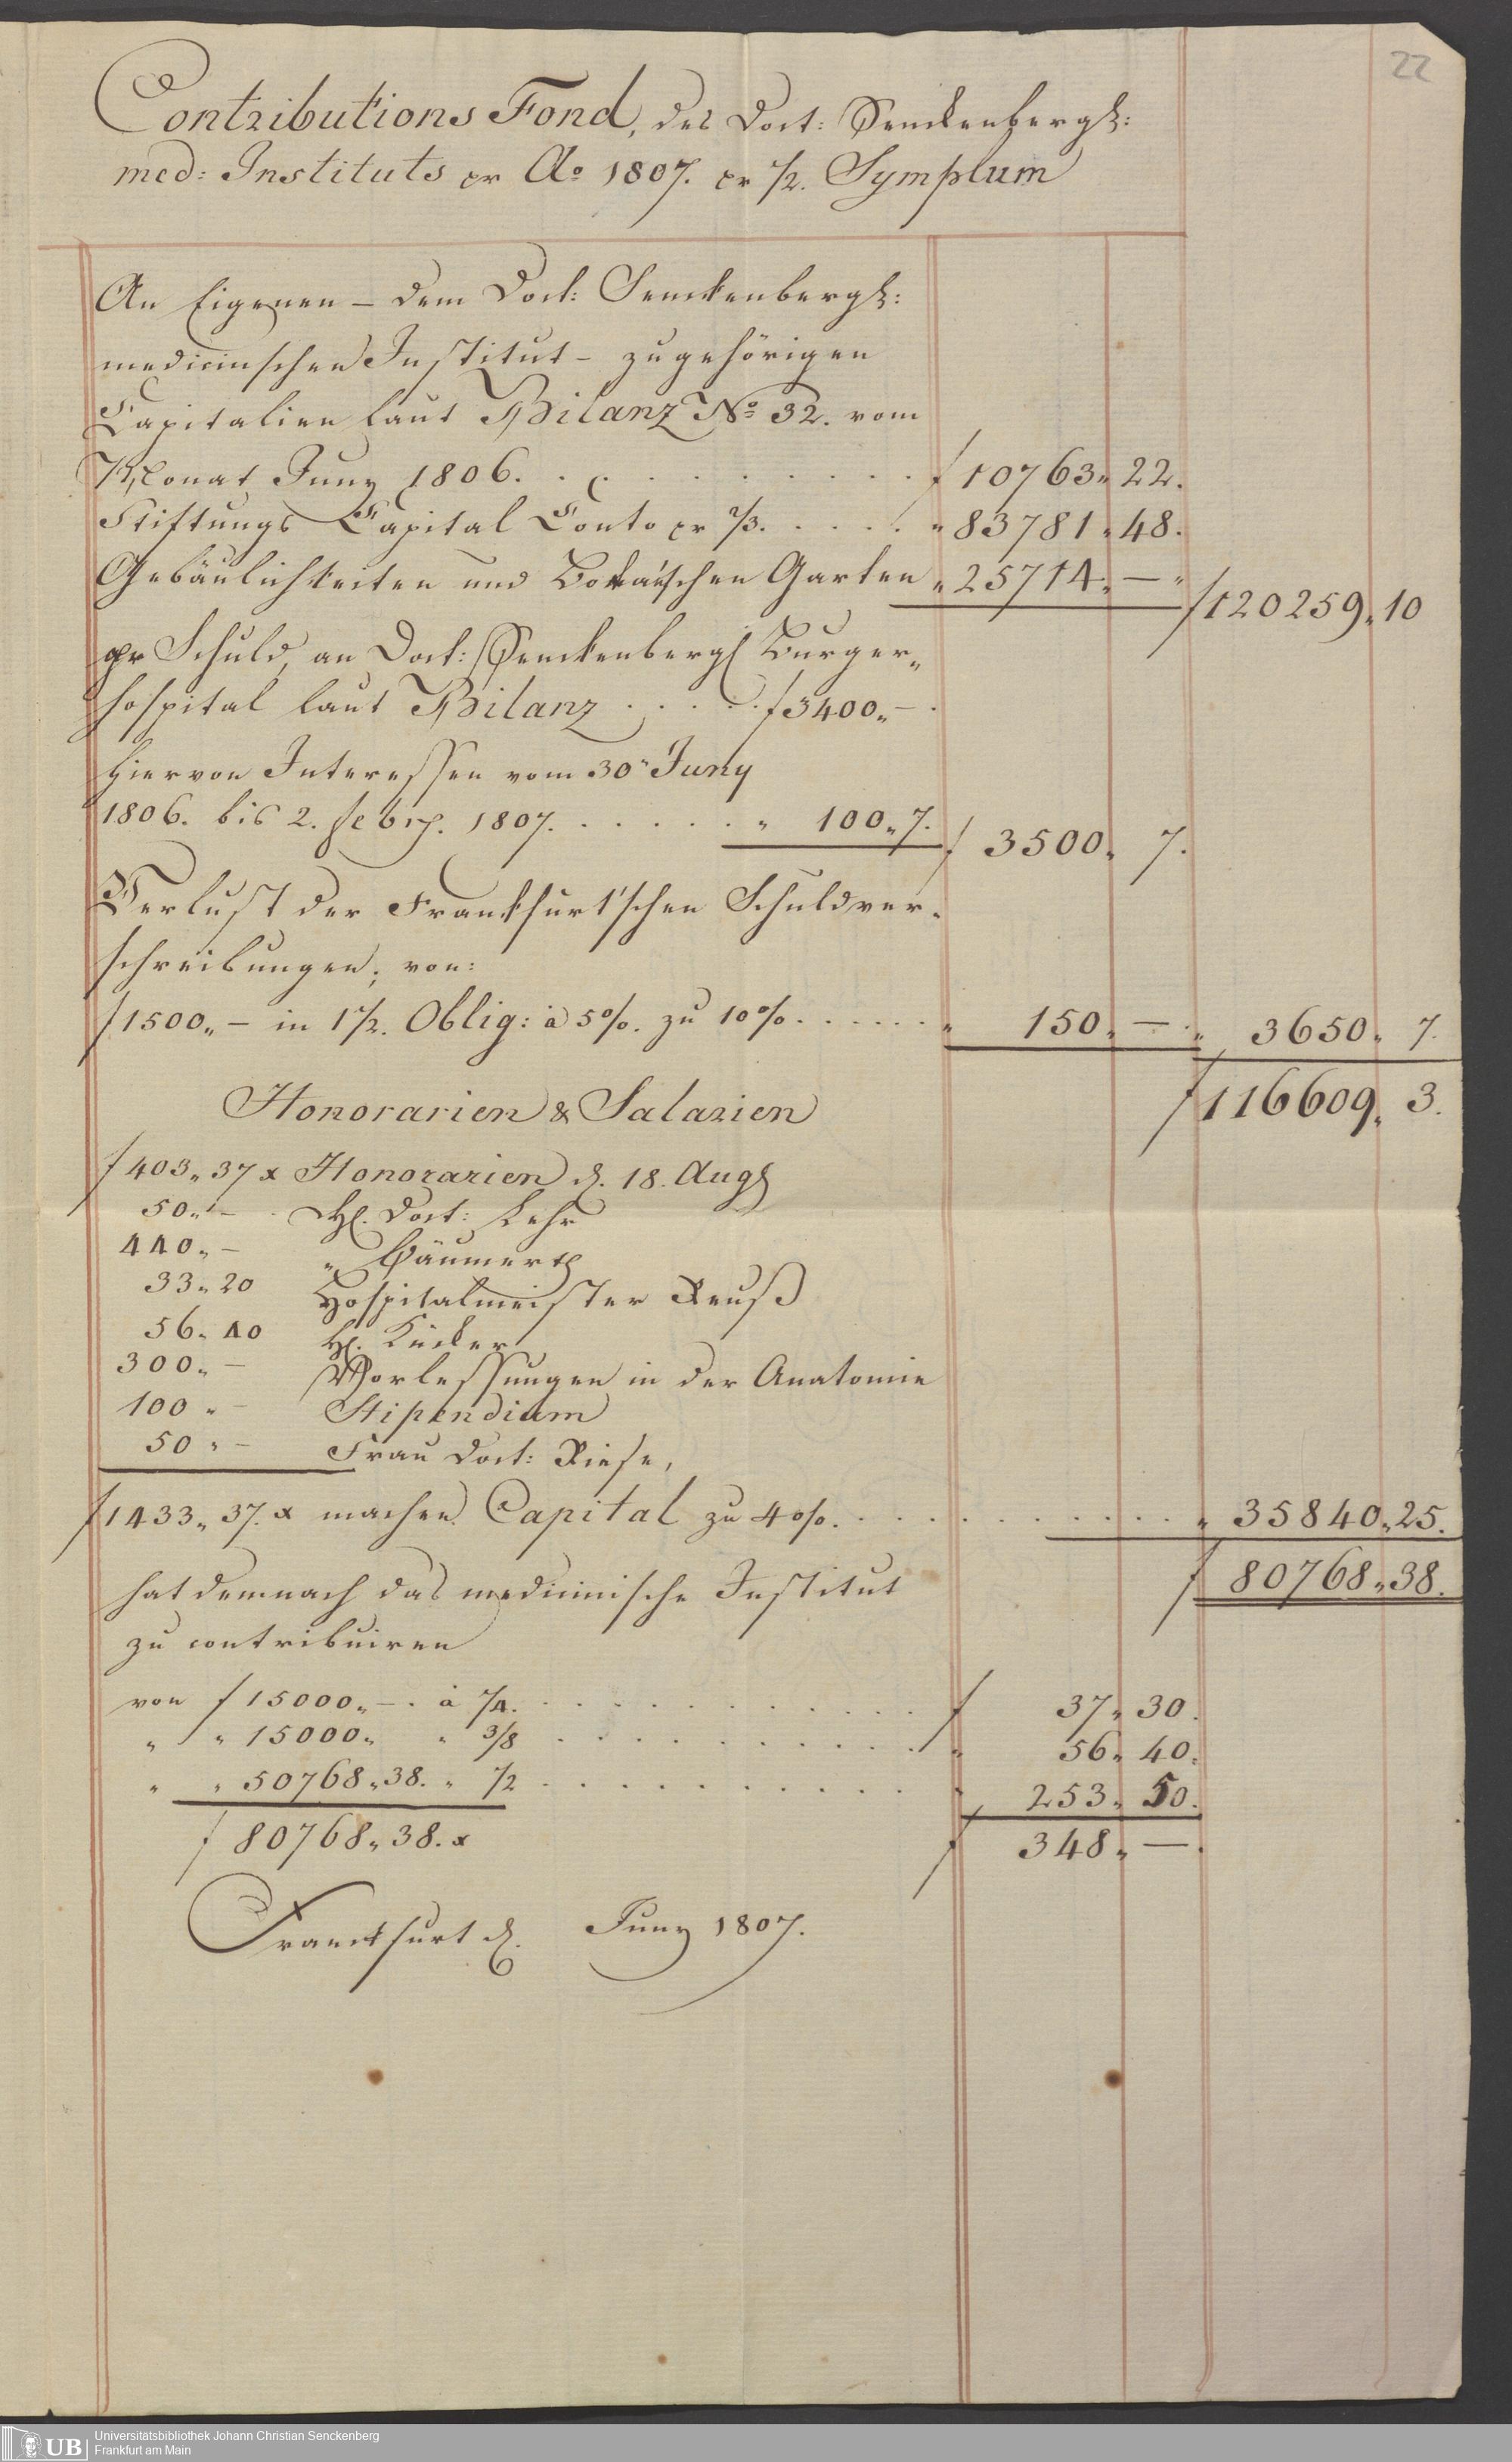 22
Contributions Fond, des Doct: Senckenbergs:
med: Instituts pr Ao 1807. pr 1/2. Symplum
An Eigenen – dem Doct: Senckenbergs:
medicinschen Institut – zugehörigen
Capitalien laut Bilanz No 32. vom
Monat Juny 1806. . . . . . . . . f 10763 „ 22.
Stiftungs Capital Conto pr 2/3. . . . . „ 83781 „ 48.
Gebäulichkeiten und Botaíschen Garten „ 25714 „ — „ f 120259 „ 10
pr Schuld, an Doct: Senckenbergs Burger„
hospital laut Bilanz . . . . . f 3400 „ – .
hiervon Interessen vom 30n Juny
1806. bis 2. febry. 1807. . . . . . . „ 100 „ 7. f 3500 „ 7.
Verlust der Frankfurt'schen Schuldver„
schreibungen, von:
f 1500 „ – in 1 1/2. Oblig: à 5 %. zu 10 % . . . . . . „ 150 „ — . „ 3650 „ 7.
f 116609 „ 3.
Honorarien & Salarien
f 403 „ 37 x Honorarien d. 18. Augs
50 „ – . H. Doct: Lehr
440 „ – „ Bäumerth
33 „ 20 Hospitalmeister Reuß
56 „ 40 H. Kücker
300 „ – Vorlessungen in der Anatomie
100 „ – Stipendium
50 „ – Frau Doct: Riese,
f 1433 „ 37. x machen Capital zu 4 %. . . . . . . . . . . „ 35840 „ 25.
f 80768 „ 38.
hat demnach das medicinische Institut
zu contribuiren
von f 15000 „ – . à 1/4. . . . . . . . . . f 37 „ 30.
„ „ 15000 „ „ 3/8 . . . . . . . . . . „ 56 „ 40.
„ „ 50768 „ 38. „ 1/2 . . . . . . . . . . „ 253 „ 50.
f 80768 „ 38. x f 348 „ — .
Franckfurt d. Juny 1807.
UB
Universitätsbibliothek Johann Christian Senckenberg
Frankfurt am Main